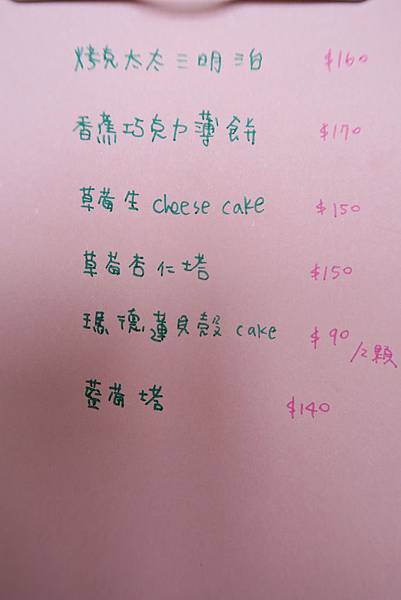 烤克太太三明治 $160
香蕉巧克力薄餅 $170
草莓生 cheese cake $150
草莓杏仁塔 $150
瑪德蓮貝殼 cake $90/2顆
藍莓塔 $140